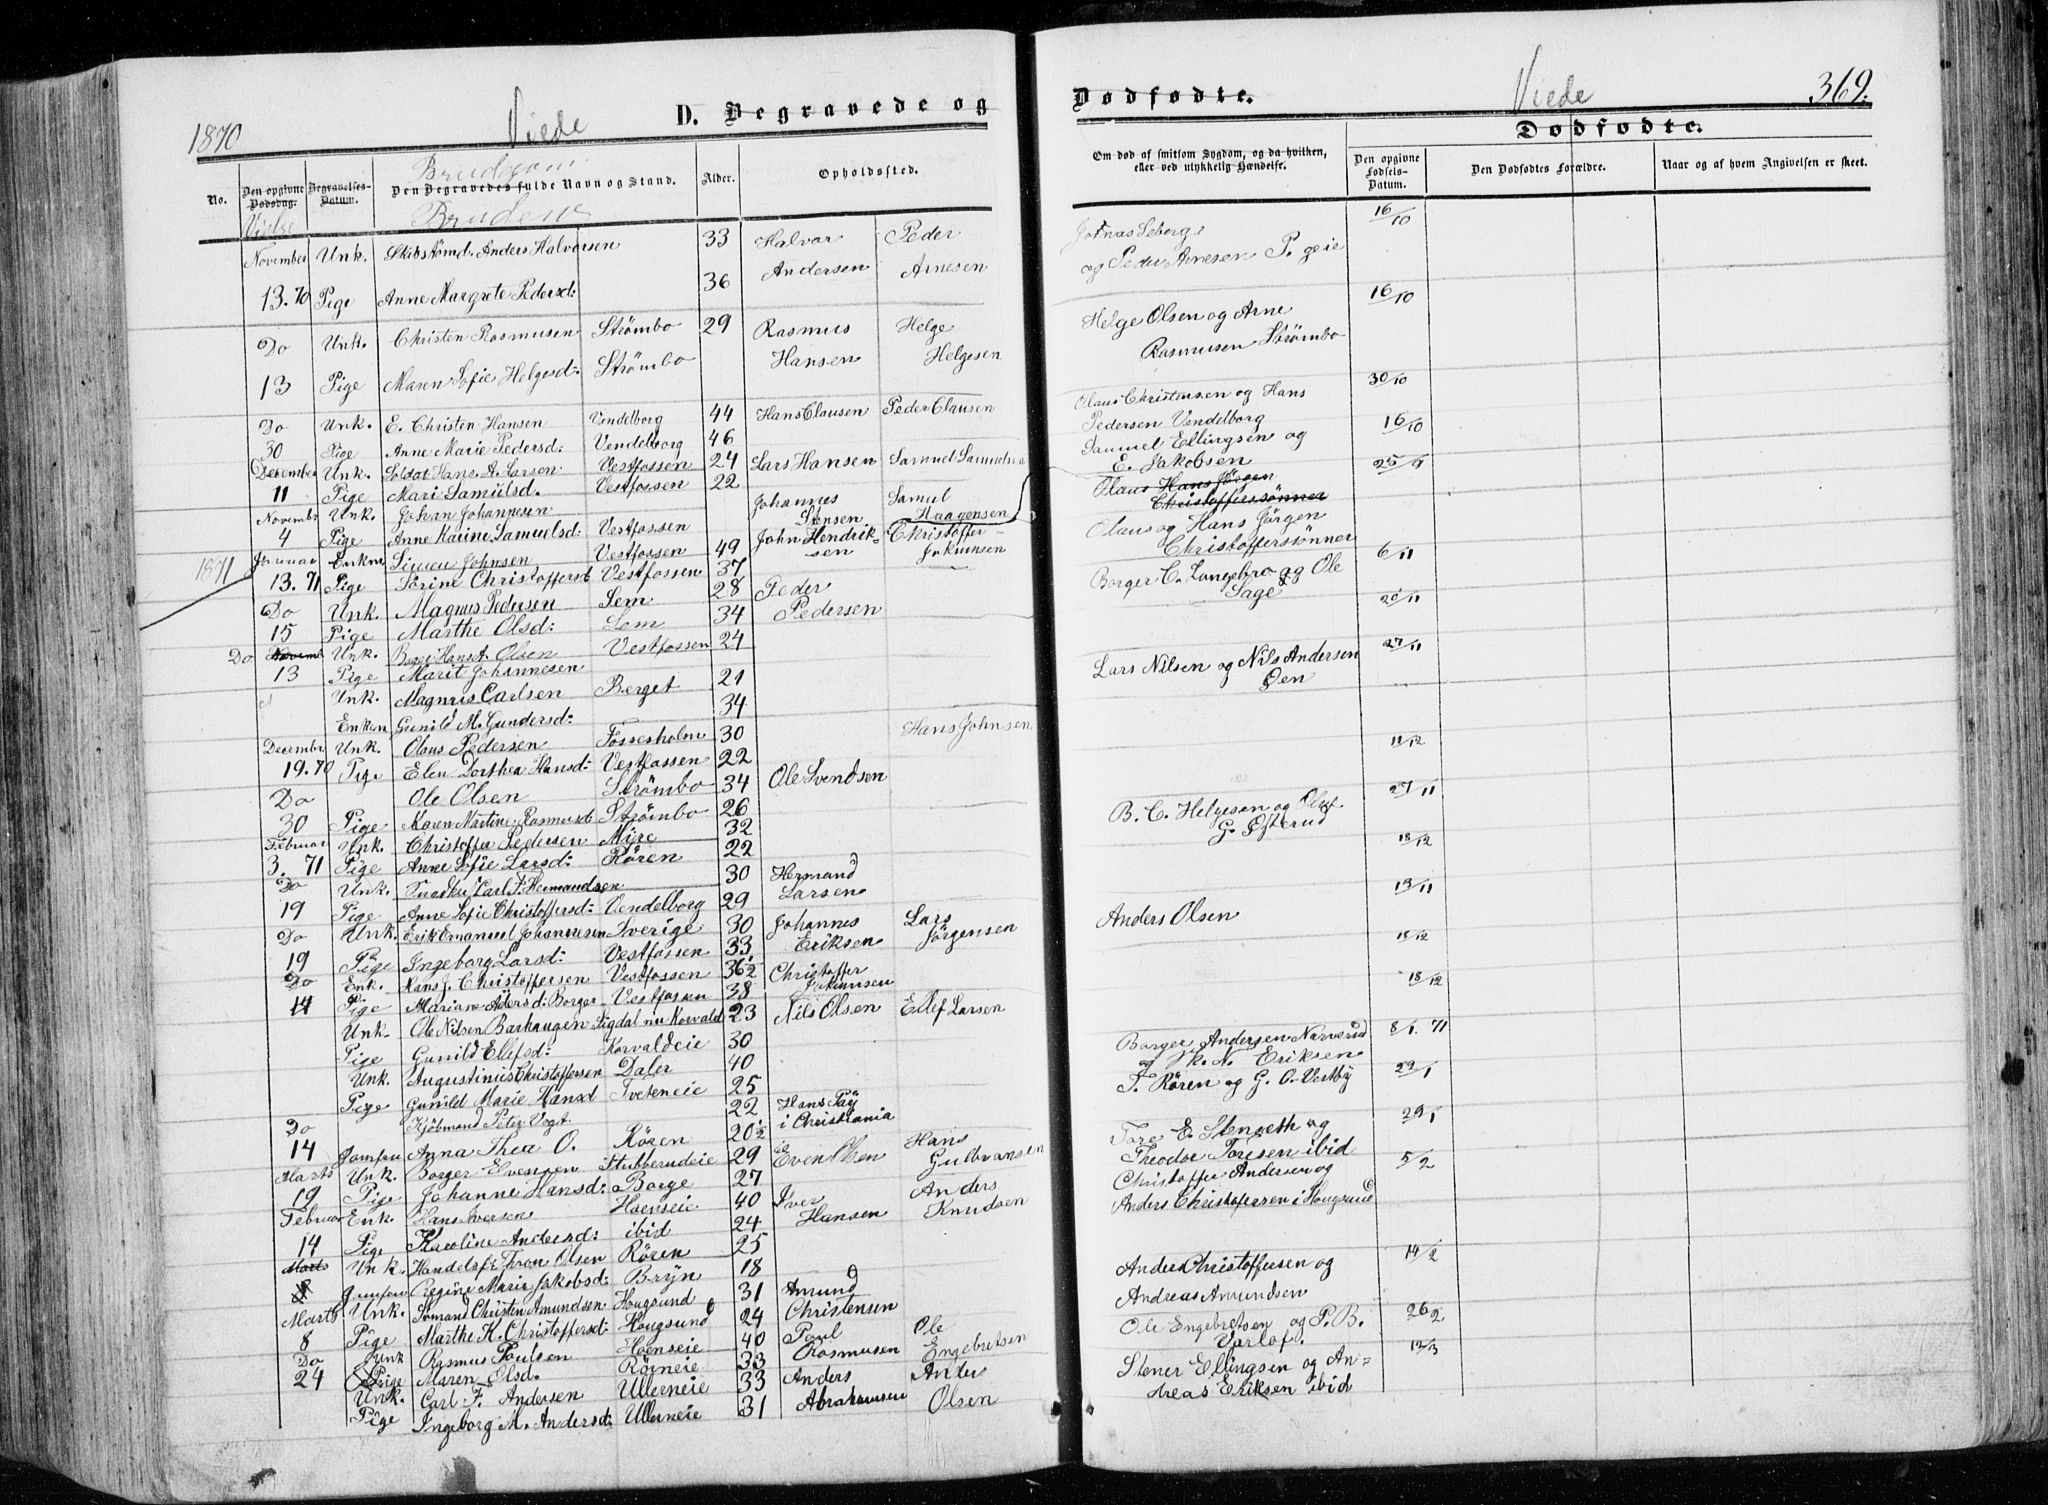 1870
Viede
D. Begravede og
Dødfødte.
Viede
369.
No.
Den opgivne Dødsdag.
Vielse
Begravelses-Datum.
Brudgom
Den Begravedes fulde Navn og Stand.
Brudene
Alder.
Opholdssted.
Om død af smitsom Sygdom, og da hvilken, eller ved ulykkelig Hændelse.
Dødfødte.
Den opgivne Fødsels-Datum.
Den Dødfødtes Forældre.
Naar og af hvem Angivelsen er skeet.
November Unk. Skibstømd. Anders Halvorsen 33 Halvor Andersen Peder Arnesen
13.70 Pige Anne Margrete Pedersd: 36
og Peder Arnesen P. geie 16/10
Do Unk. Christen Rasmusen Strømbo 29 Rasmus Hansen Helge Helgesen
Helge Olsen og Arne Rasmusen Strømbo 16/10
13 Pige Maren Sofie Helgesd: Strømbo
Do Unk. E. Christen Hansen Vendelborg 44 Hans Clausen Peder Clausen
Olaus Christensen og Hans Pedersen Vendelborg 30/10
30 Pige Anne Marie Pedersd: Vendelborg 46
December Unk. Soldat Hans A. Larsen Vestfossen 24 Lars Hansen Samuel Samuelsen
Samuel Ellingsen og E. Jakobsen 16/10
11 Pige Mari Samuelsd. Vestfossen 22
Novembr Unk. Johan Johannesen Johannes Stensen Samuel Haagensen
Olaus Hans Jørgen Christofferssønner 25/9
4 Pige Anne Karine Samuelsd: Vestfossen
Olaus og Hans Jørgen Christofferssønner
1871
Januar Enkm. Simen Johnsen Vestfossen 49 John Hendriksen Christoffer Jokumsen
13.71 Pige Sorine Christoffersd Vestfossen 37
Borger C. Langebro og Ole Sage 6/11
Do Unk. Magnus Pedersen Sem 28 Peder Pedersen
15 Pige Marthe Olsd: Sem 34
20/11
Do Novemb Unk. Olsen Vestfossen 24
13 Pige Marit Johannesen
Lars Nilsen og Nils Andersen Øen 27/11
Unk. Magnus Carlsen Berget 21
Enken Gunild M. Gundersd: 34
Decembr Unk. Olaus Pedersen Fossesholm 30 Hans Johnsen
19.70 Pige Elen Dorthea Hansd: Vestfossen 22
11/12
Do Ole Olsen Strømbo 34 Ole Svendsen
30 Pige Karen Martine Rasmusd Strømbo 26
B. C. Helgesen og Oluf G. Øfterud 27/11
Februar Unk. Christoffer Pedersen Myre 32
3. 71 Pige Anne Sofie Larsd: Røren 22
18/12
Do Unk. Carl F. Hermandsen 30 Hermand Larsen
19 Pige Anne Sofie Christoffersd: Vendelborg 29
13/11
Do Unk. Erik Emanuel Johannesen Sverige 30 Johannes Eriksen Lars Jørgensen
Anders Olsen
19 Pige Ingeborg Larsd: Vestfossen 33
18/12
Do Enk. Hans J. Christoffersen Vestfossen 36½ Christoffer Jokumsen
14 Pige Mariane Borger Vestfossen 38
18/12
Unk. Ole Nilsen Barhaugen Sigdal nu Korvald 23 Nils Olsen Ellef Larsen
Pige Gunild Ellefsd: Korvaldeie 30
Borger Andersen Narverud og N. Eriksen 8/1. 71
Unk. Augustinus Christoffersen Daler 40
Pige Gunild Marie Hansd Tveteneie 25
T. Røren og G. O. Vestby 29/1
Do Kjøbmand Peter Vogt 22 Hans i Christiania
14 Jomfru Anna Thea O. Røren 20½
Tore E. Stenseth og Theodor Toresen ibid 29/1
Marts Unk. Borger Evensen Stubberudeie 29 Even Olsen Hans Gulbransen
19 Pige Johanne Hansd: Borge 27
Christoffer Andersen og Anders Christofersen i Hougsund 5/2
Februar Enk. Hans Iversen Hoenseie 40 Iver Hansen Anders Knudsen
14 Pige Karoline Andersd: ibid 24
Marts Unk. Handelsf. Thron Olsen Røren 25
8 Jomfru Regine Marie Jakobsd: Bryn 18
Anders Christoffersen og Andreas Amundsen 14/2
Marts Unk. Sømand Christen Amundsen Hougsund 31 Amund Christensen
8 Pige Marthe K. Christoffersd: Hougsund 24
Ole Engebretsen og P. B. Varlof. 26/2
Do Unk Rasmus Poulsen Hoenseie 40 Poul Rasmusen Ole Engebretsen
24 Pige Maren Olsd. Røreneie 33
Stener Ellingsen og Andreas Eriksen ibid 12/3
Unk. Carl F. Andersen Ullerneie 33 Anders Abrahamsen Anders Olsen
Pige Ingeborg M. Andersd: Ullerneie 31